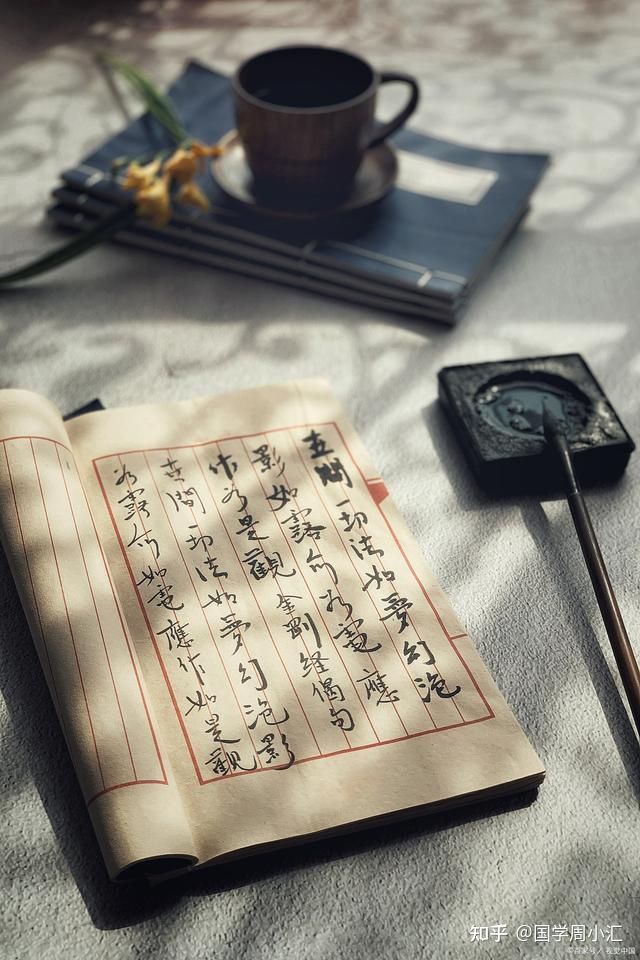 世間一切法如夢幻泡
影如露亦如電應
作如是觀金剛經偈句
世間一切法如夢幻泡影
如露亦如電應作如是觀
知乎 @国学周小汇
©百家号/视觉中国